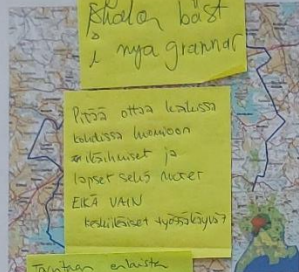 bäst
i nya grannar
Pitää ottaa kaikissa
kohdissa huomioon
ikäihmiset ja
lapset sekä nuoret
EIKÄ VAIN
keskiikäiset työssäkäyvät
Tarvitaan erilaista